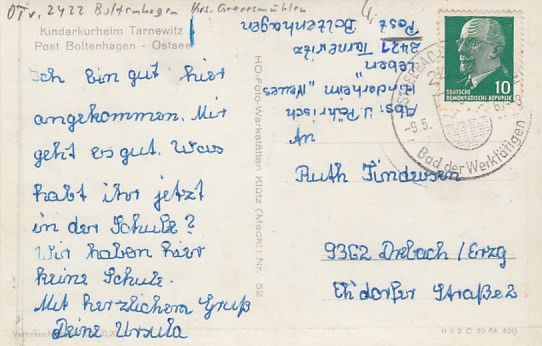 OT v. 2422 Boltenhagen Krs. Grevesmühlen
Kinderkurheim Tarnewitz
Post Boltenhagen - Ostsee
Ich bin gut hier
angekommen. Mir
geht es gut. Was
habt ihr jetzt
in der Schule?
Wir haben hier
keine Schule.
Mit herzlichem Gruß
Deine Ursula
HO-Foto-Werkstätten Klütz (Meckl) Nr. 52
Abs. U. Pöhrisch
Kinderheim „Neues
Leben"
2421 Tarnewitz
Post Boltenhagen
DEUTSCHE
DEMOKRATISCHE REPUBLIK
10
OSTSEEBAD
-9.5.
Bad der Werktätigen
Ruth Findeisen
9362 Drebach/Erzg
Eh'dorfer Straße 2